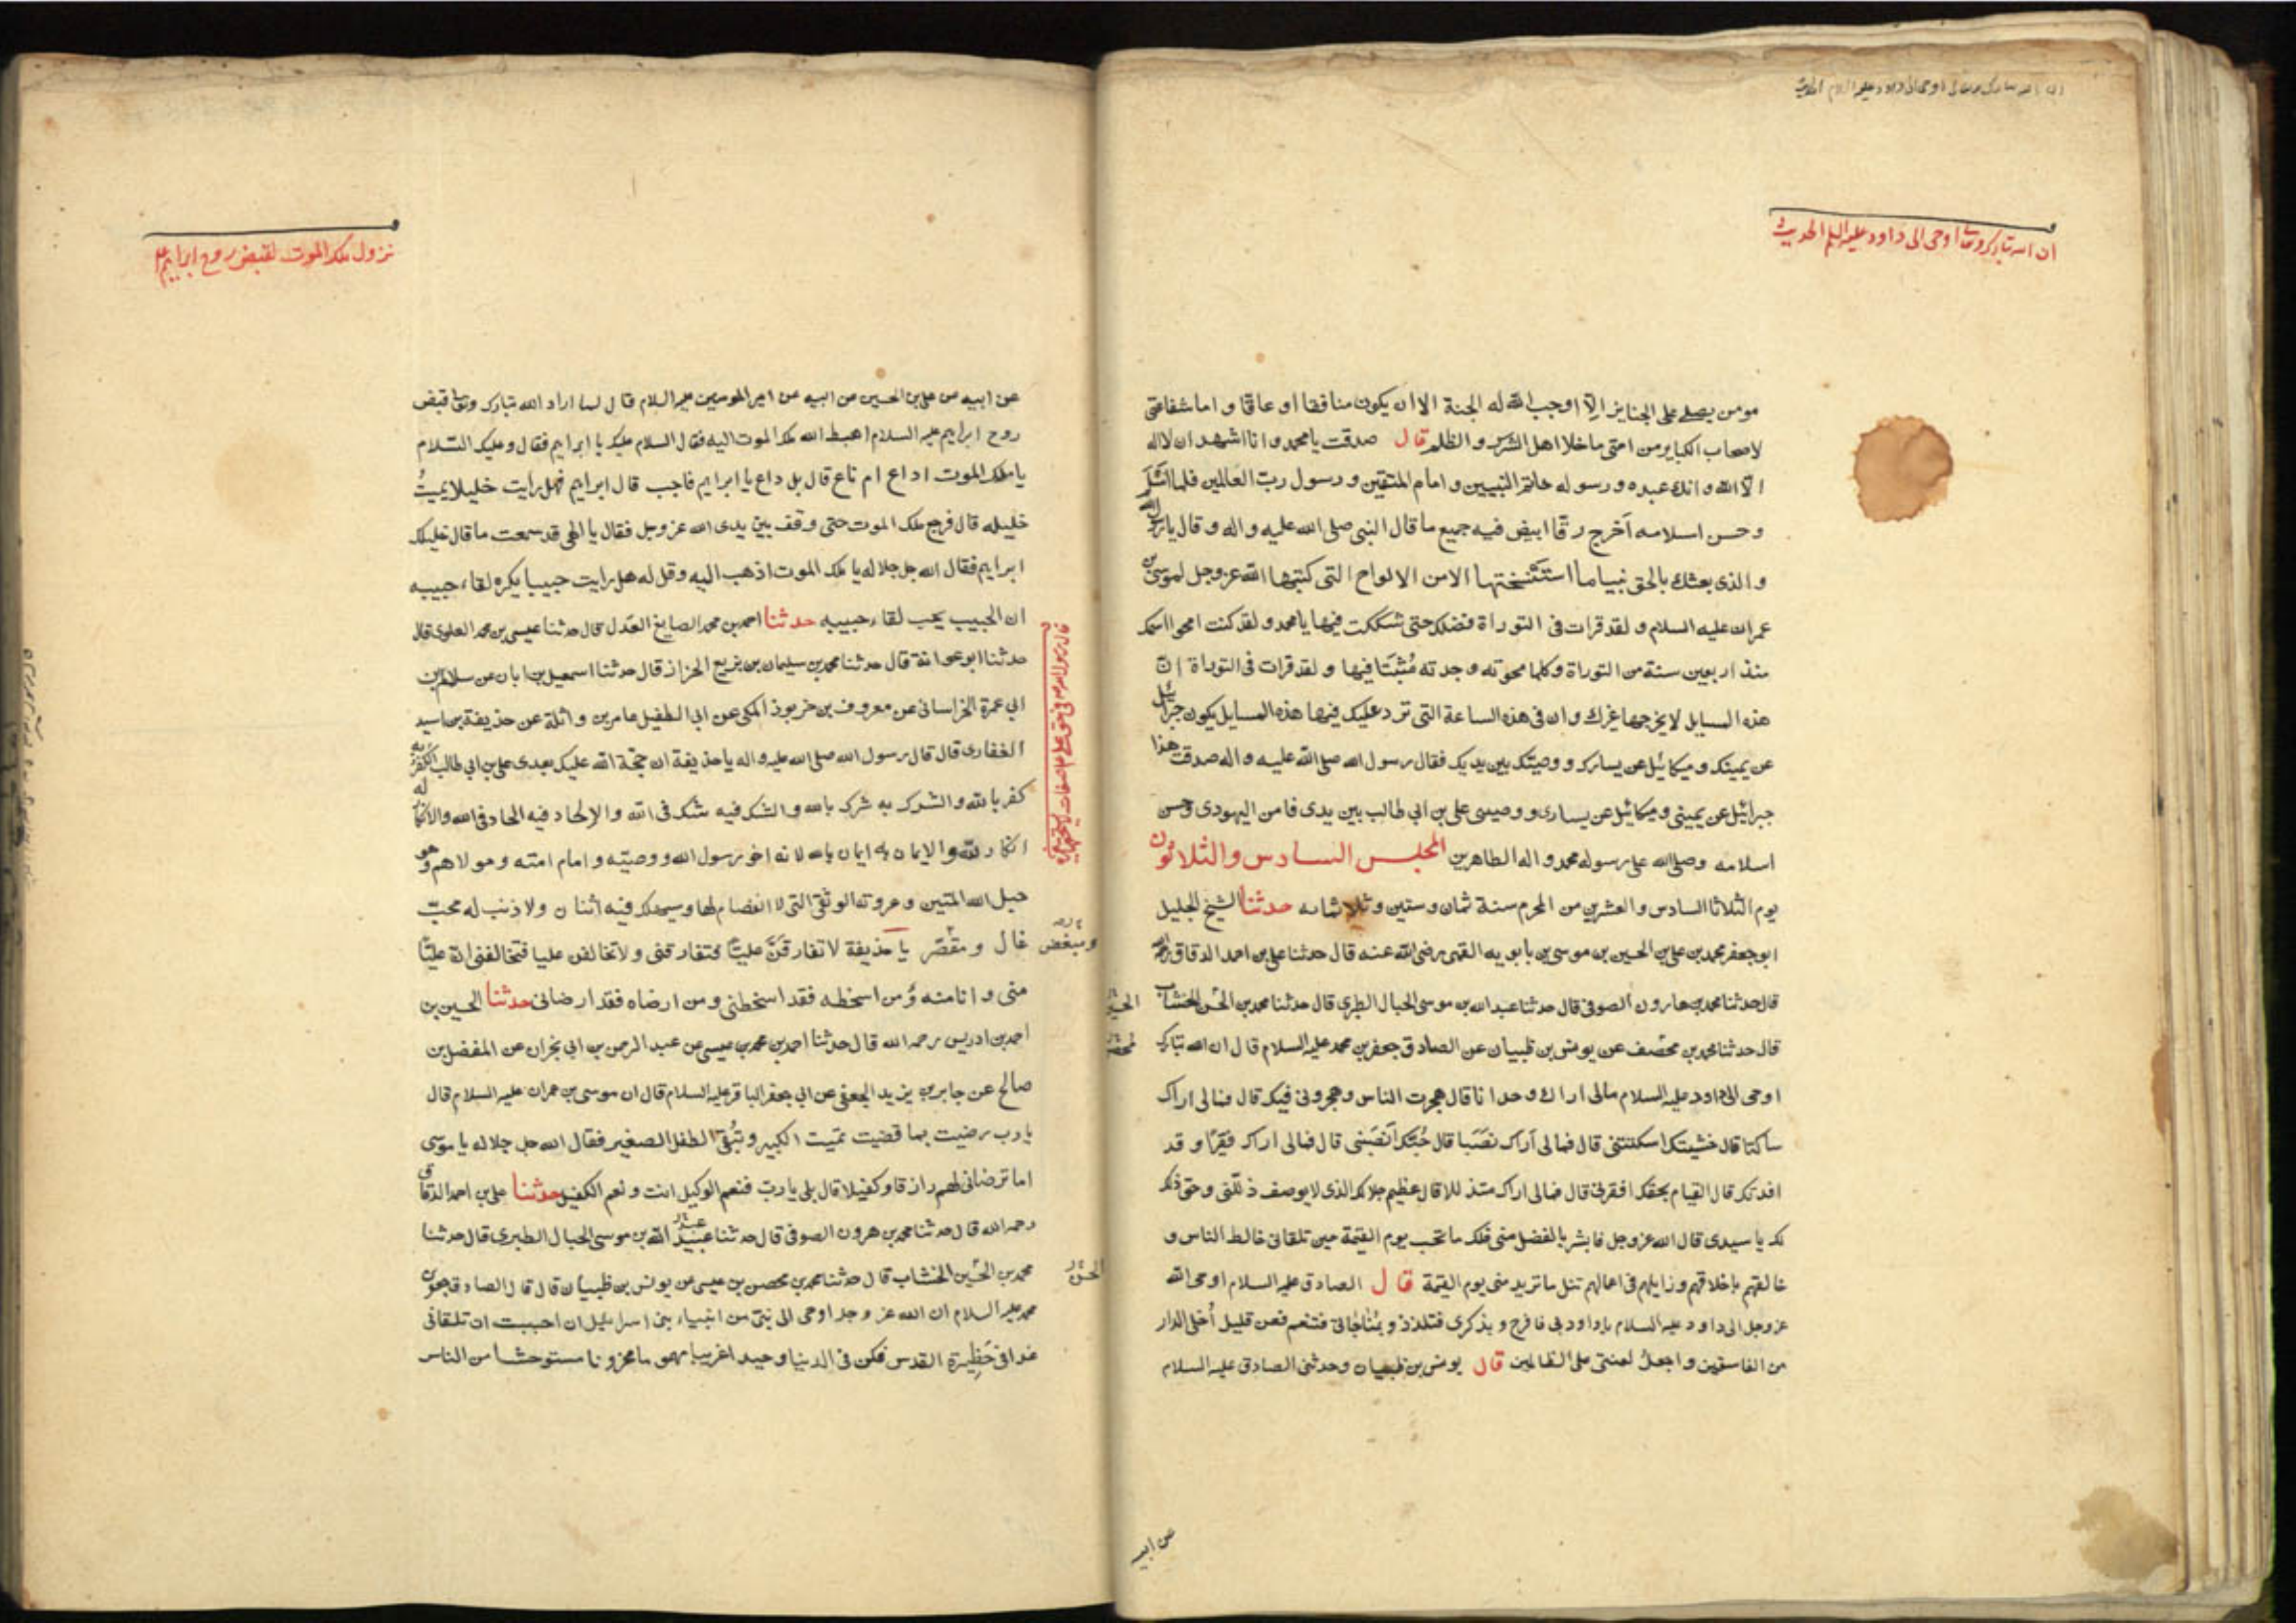 ان الله تبارك وتعالى اوحى الى داود عليه السلم الحديث
مومن يصلے على الجنايز الّا اوجب الله له الجنة الا ان يكون منافقا او عاقا و اما شفاعتى
لاصحاب الكباير من امتى ما خلا اهل الشرك و الظلم قال صدقت يا محمد و انا اشهد ان لا اله
الّا الله و انك عبده و رسوله خاتم النبيين و امام المتقين و رسول ربّ العالمين فلما اسْلَمَ
و حسن اسلامه اخرج رقّا ابيض فيه جميع ما قال النبى صلى الله عليه و اله و قال يا رسول الله
و الذى بعثك بالحق نبيا ما استنسختها الا من الالواح التى كتبها الله عز وجل لموسى بن
عمران عليه السلام و لقد قرات فى التوراة فضلك حتى شككت فيها يا محمد و لقد كنت امحوا اسمك
منذ اربعين سنة من التوراة و كلما محوته وجدته مُثبَتا فيها و لقد قرات فى التوراة انّ
هذه المسايل لا يخرجها غيرك و ان فى هذه الساعة التى ترد عليك فيها هذه المسايل يكون جبرائيل
عن يمينك و ميكائيل عن يسارك و وصيّك بين يديك فقال رسول الله صلى الله عليه و اله صدقت هذا
جبرائيل عن يمينى و ميكائيل عن يسارى و وصيى على بن ابى طالب بين يدى فامن اليهودى و حسن
اسلامه و صلى الله على رسوله محمد و اله الطاهرين المجلس السادس والثلاثون
يوم الثلاثا السادس والعشرين من المحرم سنة ثمان و ستين و ثلاثمائه حدثنا الشيخ الجليل
ابو جعفر محمد بن على بن الحسين بن موسى بن بابويه القمى رضى الله عنه قال حدثنا على بن احمد الدقاق رحمه الله
قال حدثنا محمد بن هارون الصوفى قال حدثنا عبد الله بن موسى الحبال الطبرى قال حدثنا محمد بن الحسن الخشاب
قال حدثنا محمد بن محصف عن يونس بن ظبيان عن الصادق جعفر بن محمد عليه السلام قال ان الله تبارك
اوحى الى داود عليه السلام مالى اراك وحدانا قال هجرت الناس و هجرونى فيك قال فمالى اراك
ساكتا قال خشيتك اسكتتنى قال فمالى اراك نصَبا قال حُبّك انصَبنى قال فمالى اراك فقيرا و قد
افدتك قال القيام بحقك افقرنى قال فمالى اراك متذللا قال عظيم جلالك الذى لا يوصف ذلّلنى و حق ذلك
لك يا سيدى قال الله عز وجل فابشر بالفضل منى فلك ما تحب يوم القيمة حين تلقانى خالط الناس و
خالقهم باخلاقهم و زايلهم فى اعمالهم تنل ما تريد منى يوم القيمة قال الصادق عليه السلام اوحى الله
عز وجل الى داود عليه السلام يا داود بى فافرح و بذكرى فتلذذ و بمُناجاتى فتنعم فعن قليل اُخلى الدار
من الفاسقين و اجعل لعنتى على الظالمين قال يونس بن ظبيان و حدثنى الصادق عليه السلام
عن ابيه
نزول ملك الموت لقبض روح ابراهيم ع
عن ابيه عن على بن الحسين عن ابيه عن امير المومنين عليه السلام قال لما اراد الله تبارك وتعالى قبض
روح ابراهيم عليه السلام اهبط الله ملك الموت اليه فقال السلام عليك يا ابراهيم فقال و عليك السّلام
يا ملك الموت اداع ام ناع قال بل داع يا ابراهيم فاجب قال ابراهيم فهل رايت خليلا يميتُ
خليله قال فرجع ملك الموت حتى وقف بين يدى الله عز وجل فقال يا الهى قد سمعت ما قال خليلك
ابراهيم فقال الله جل جلاله يا ملك الموت اذهب اليه و قل له هل رايت حبيبا يكره لقاء حبيبه
ان الحبيب يحب لقاء حبيبه حدثنا احمد بن محمد الصايغ العدل قال حدثنا عيسى بن محمد العلوى قال
حدثنا ابو عوانة قال حدثنا محمد بن سليمان بن بزيع الخزاز قال حدثنا اسمعيل بن ابان عن سلام بن
ابى عمرة الخراسانى عن معروف بن خربوذ المكى عن ابى الطفيل عامر بن واثلة عن حذيفة بن اسيد
الغفارى قال قال رسول الله صلى الله عليه و اله يا حذيفة ان حجّة الله عليك بعدى على بن ابى طالب الكفر به
كفر بالله و الشرك به شرك بالله و الشك فيه شك فى الله و الالحاد فيه الحاد فى الله و الانكار له
انكار لله و الايمان به ايمان بالله لانه اخو رسول الله و وصيّه و امام امته و مولاهم و هو
حبل الله المتين و عروته الوثقى التى لا انفصام لها و سيهلك فيه اثنان و لا ذنب له محبّ
غال و مقصّر يا حذيفة لا تفارقنّ عليّا فتفارقنى و لا تخالفن عليا فتخالفنى ان عليّا
و مبغض
منى و انا منه و من اسخطه فقد اسخطنى و من ارضاه فقد ارضانى حدثنا الحسين بن
احمد بن ادريس رحمه الله قال حدثنا احمد بن محمد بن عيسى عن عبد الرحمن بن ابى نجران عن المفضل بن
صالح عن جابر بن يزيد الجعفى عن ابى جعفر الباقر عليه السلام قال ان موسى بن عمران عليه السلام قال
يا رب رضيت بما قضيت تميت الكبير و تُبقى الطفل الصغير فقال الله جل جلاله يا موسى
اما ترضانى لهم رازقا و كفيلا قال بلى يا ربّ فنعم الوكيل انت و نعم الكفيل حدثنا على بن احمد الدقاق
رحمه الله قال حدثنا محمد بن هرون الصوفى قال حدثنا عبيد الله بن موسى الحبال الطبرى قال حدثنا
محمد بن الحسين الخشاب قال حدثنا محمد بن محصن بن عيسى عن يونس بن ظبيان قال قال الصادق جعفر بن
محمد عليه السلام ان الله عز وجل اوحى الى نبىّ من انبياء بنى اسرائيل ان احببت ان تلقانى
غدا فى حَظِيرة القدس فكن فى الدنيا وحيدا غريبا مهموما محزونا مستوحشا من الناس